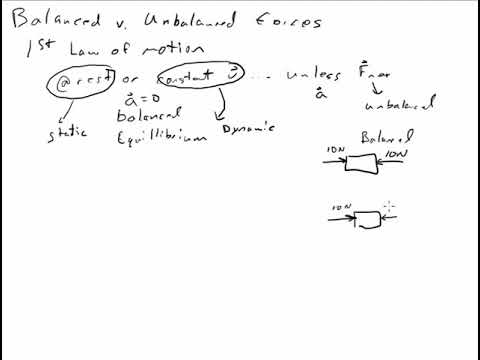 Balanced v. Unbalanced Forces
1st Law of motion
@ rest or constant v⃗ ... unless F⃗net
a⃗ = 0 a⃗
balanced unbalanced
static Equillibrium Dynamic
Balanced
10N 10N
10N